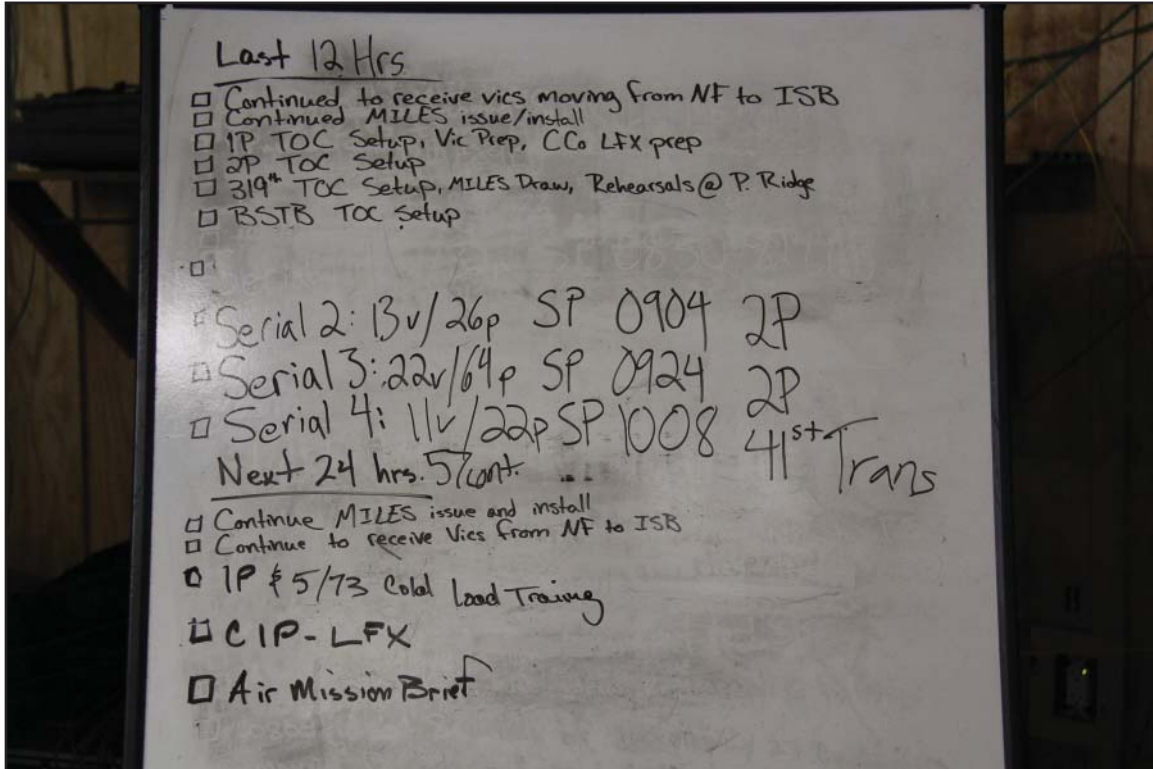 Last 12 Hrs
☐ Continued to receive vics moving from NF to ISB
☐ Continued MILES issue/install
☐ 1P TOC Setup, Vic Prep, CCo LFX prep
☐ 2P TOC Setup
☐ 319th TOC Setup, MILES Draw, Rehearsals @ P. Ridge
☐ BSTB TOC Setup
☐
☐ Serial 2: 13v/26p SP 0904 2P
☐ Serial 3: 22v/64p SP 0924 2P
☐ Serial 4: 11v/22p SP 1008 41st Trans
Next 24 hrs.
☐ Continue MILES issue and install
☐ Continue to receive Vics from NF to ISB
☐ 1P & 5/73 Cold Load Traing
☐ C 1P - LFX
☐ Air Mission Brief